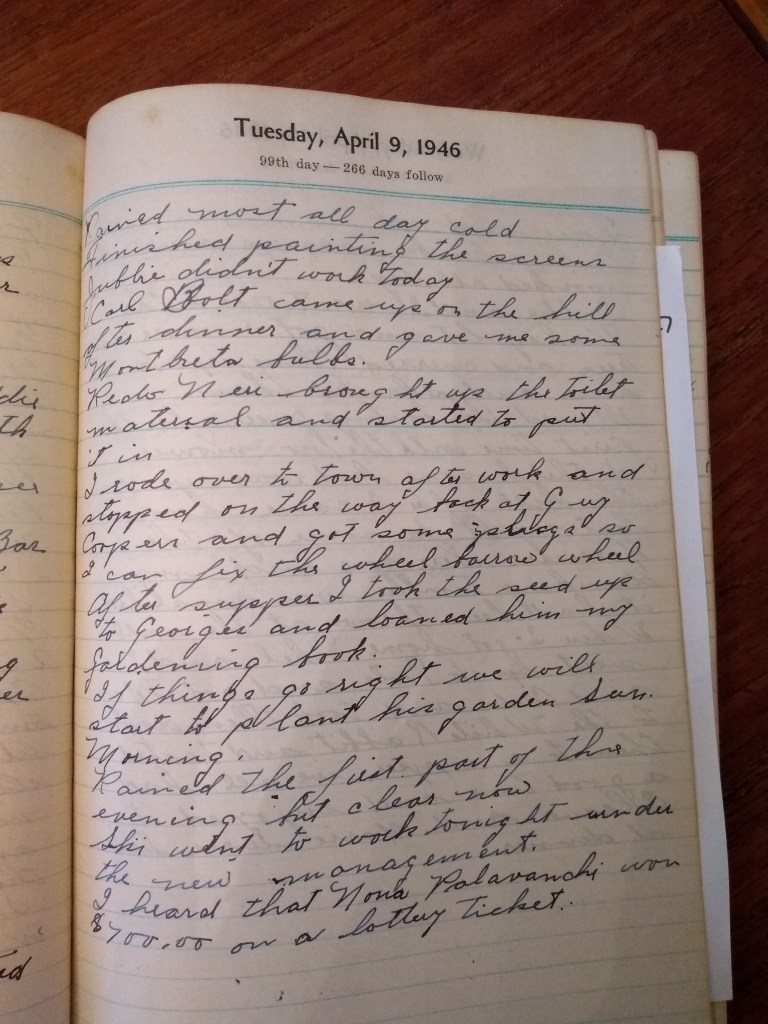 Tuesday, April 9, 1946
99th day — 266 days follow
Rained most all day cold
Finished painting the screens
Jubbie didn't work today
Carl Bolt came up on the hill
after dinner and gave me some
Montbreta bulbs.
Redo Neri brought up the toilet
material and started to put
it in
I rode over to town after work and
stopped on the way back at Guy
Coopers and got some plugs so
I can fix the wheel barrow wheel
After supper I took the seed up
to Georges and loaned him my
gardening book.
If things go right we will
start to plant his garden Sun.
Morning.
Rained the first part of the
evening but clear now
Ski went to work tonight under
the new management.
I heard that Nona Palavanchi won
$700.00 on a lottery ticket.